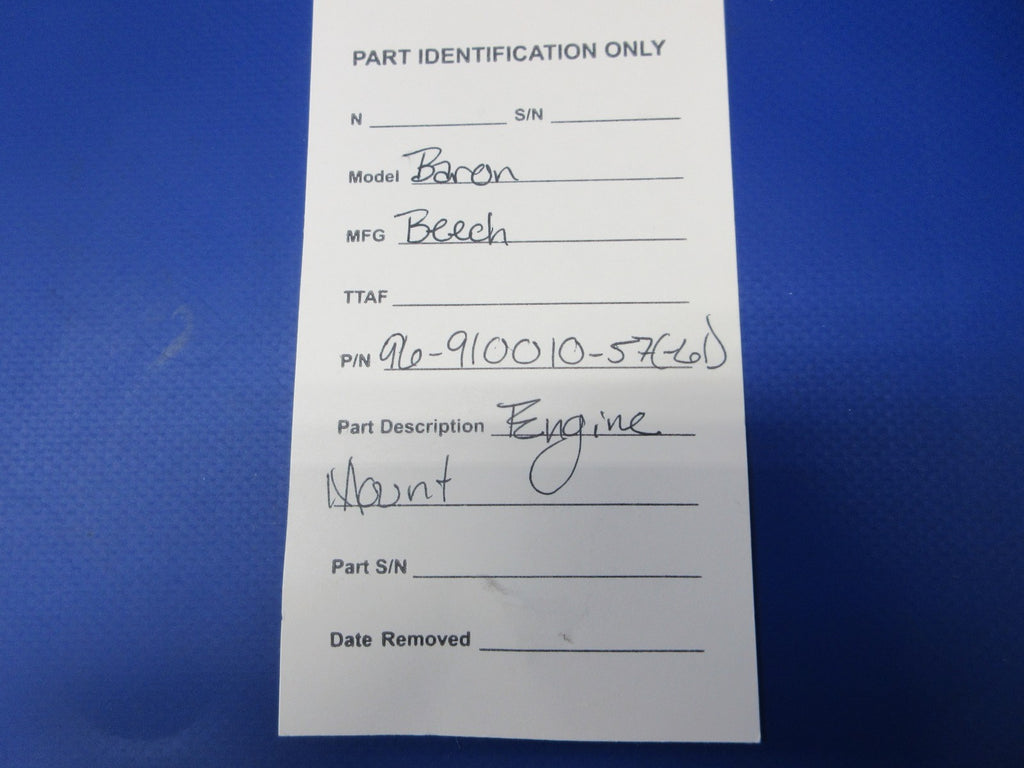 PART IDENTIFICATION ONLY
N S/N
Model Baron
MFG Beech
TTAF
P/N 96-910010-57(-61)
Part Description Engine
Mount
Part S/N
Date Removed